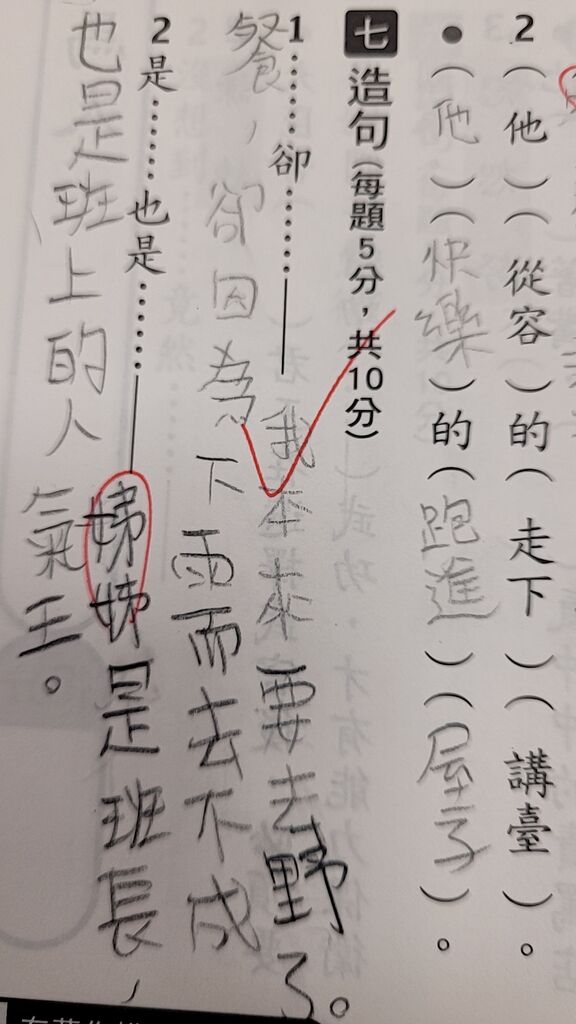 2（他）（從容）的（走下）（講臺）。
●（他）（快樂）的（跑進）（屋子）。
七 造句（每題5分，共10分）
1……卻……我本來要去野
餐，卻因為下雨而去不成
了。
2是……也是……姊姊是班長，
也是班上的人氣王。